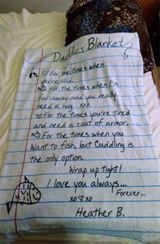 Daddies Blanket
For the times when
you're cold.
For the times when I'm
far away and you really
need a hug. xxx
For the times you're tired
and need a coat of armor.
For the times when you
Want to fish, but Cuddling is
the only option.
Wrap up tight!
I love you always...
Forever...
xoxo
Heather B.